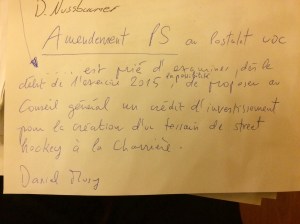 D. Nussbaumer
Amendement PS au Postulat UDC
.... est prié d'examiner, dès le
début de l'exercice 2015, la possibilité de proposer au
Conseil général un crédit d'investissement
pour la création d'un terrain de street
hockey à la Charrière.
Daniel Musy